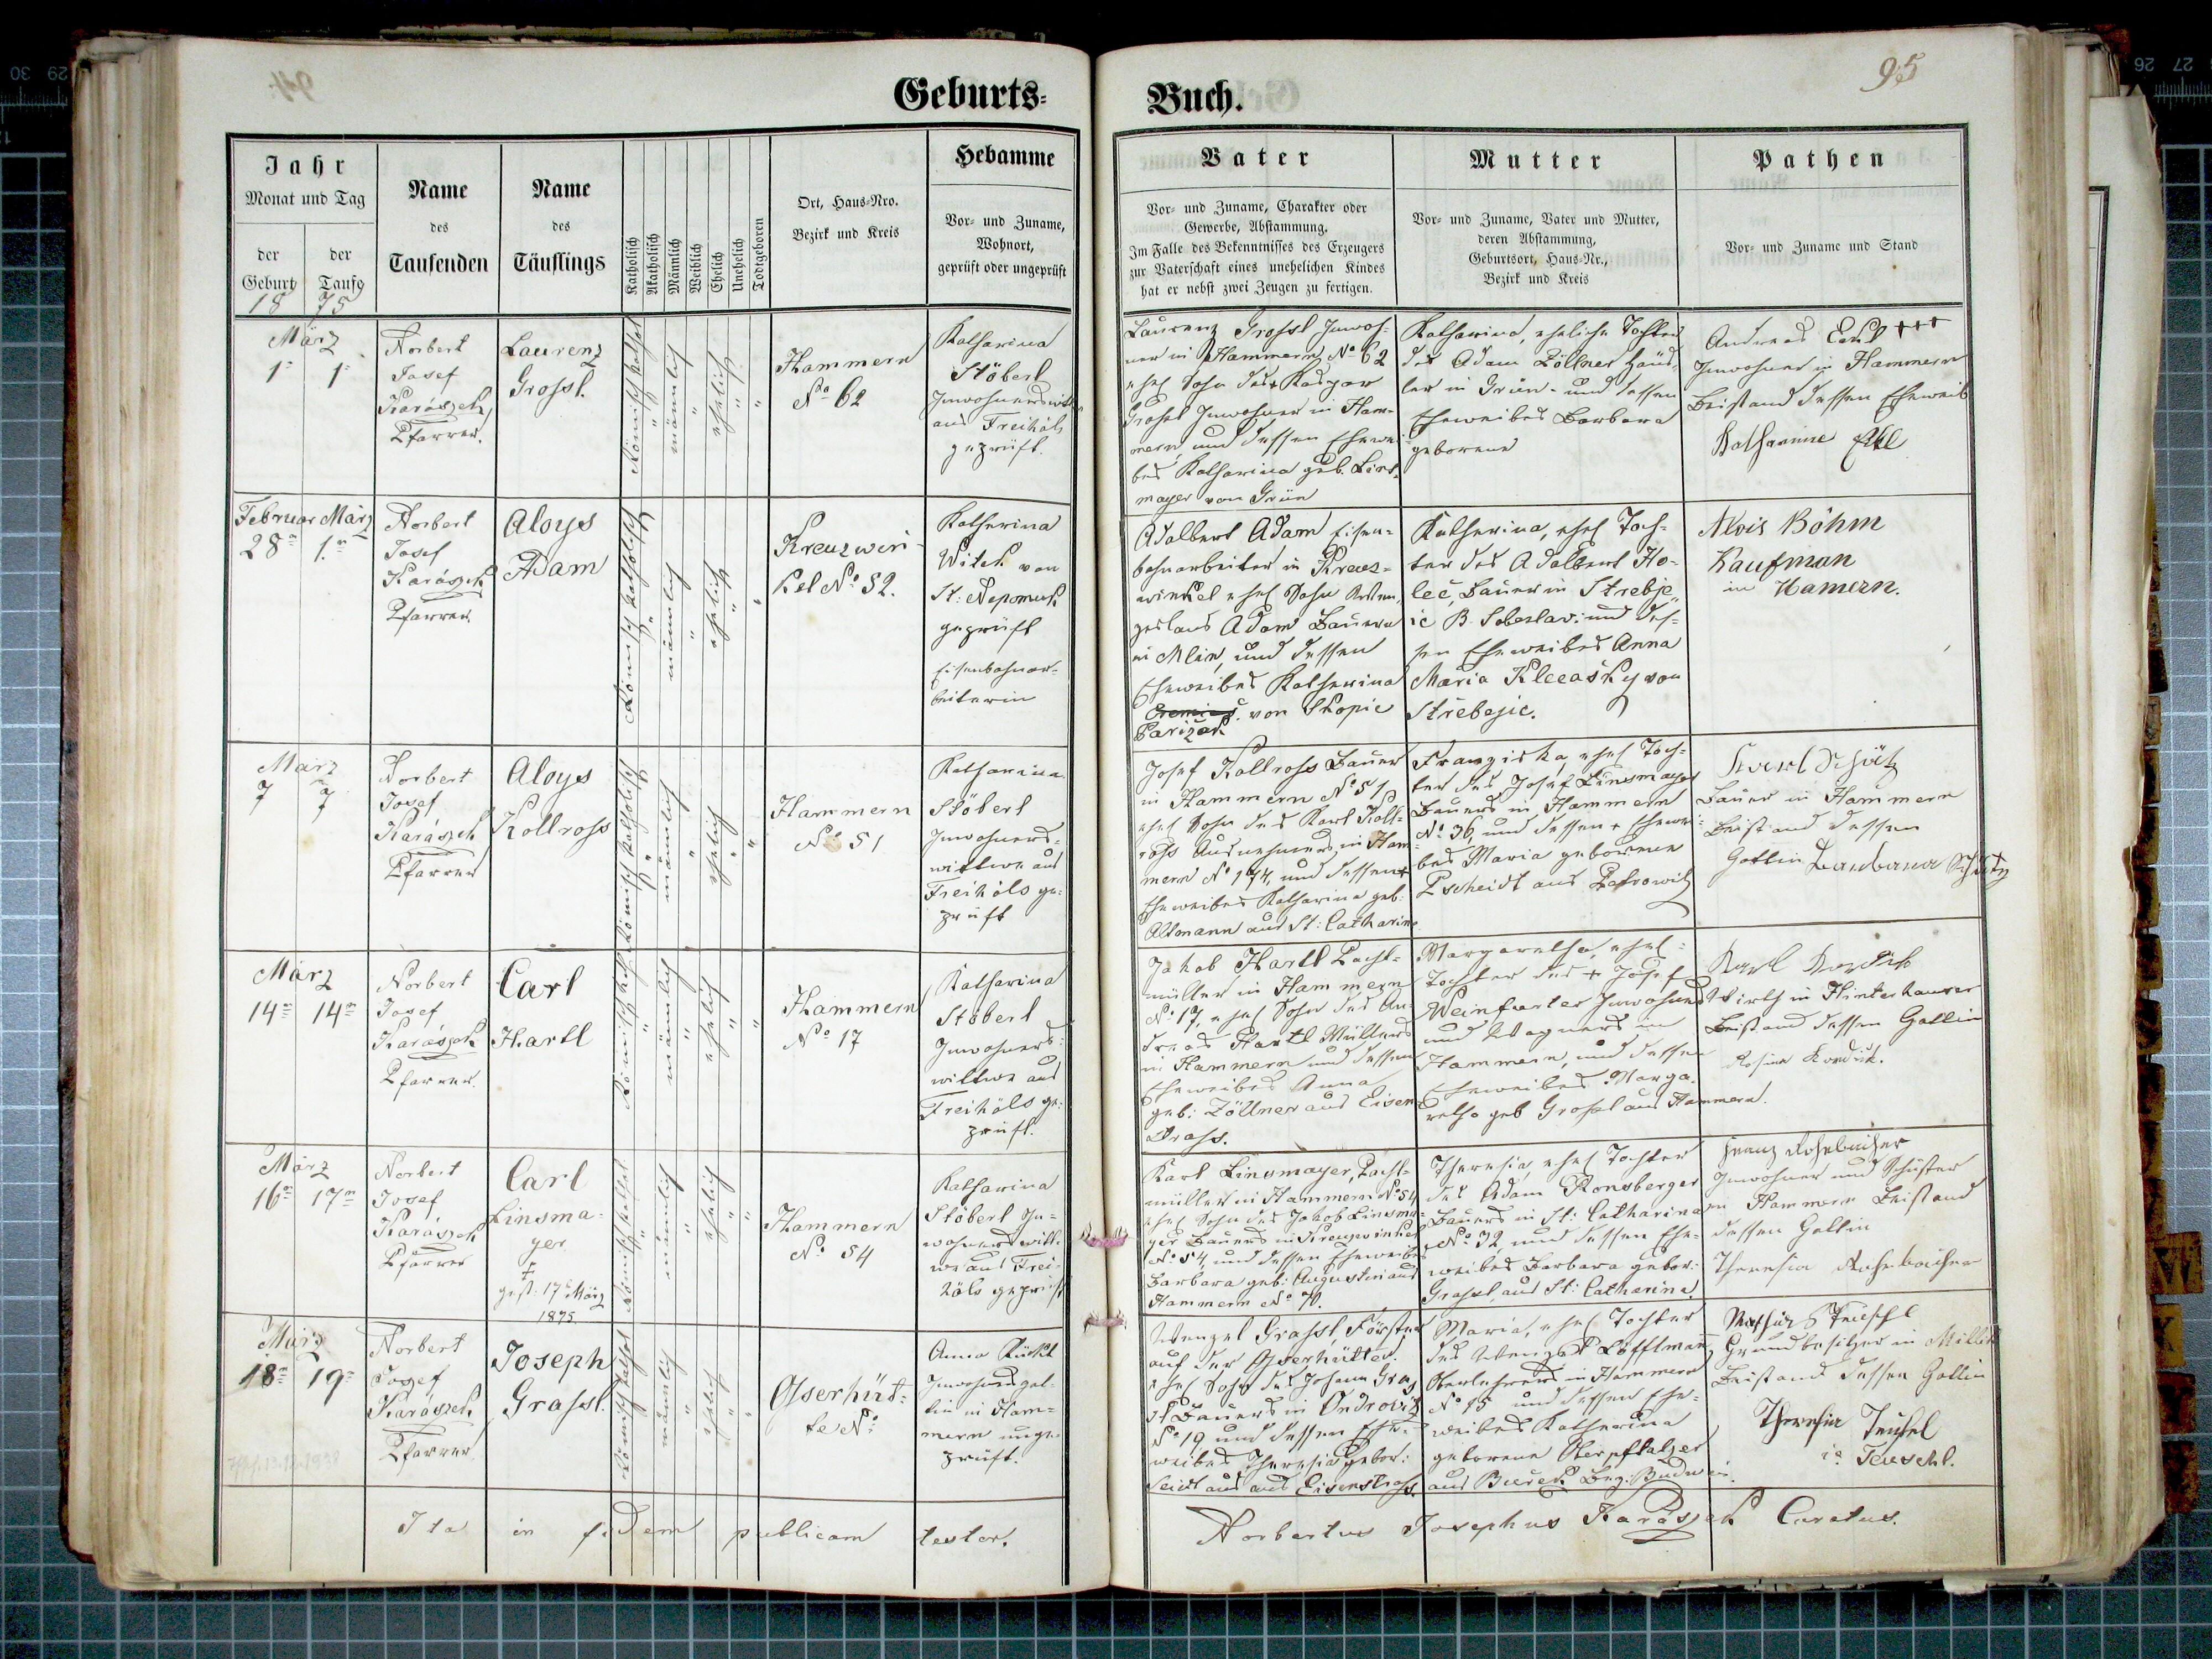 95
Geburts-
Buch.
Jahr
Monat und Tag
der Geburt
der Taufe
1875
Name
des
Taufenden
Name
des
Täuflings
Katholisch
Akatholisch
Männlich
Weiblich
Ehelich
Unehelich
Todtgeboren
Ort, Haus-Nro.
Bezirk und Kreis
Hebamme
Vor- und Zuname,
Wohnort,
geprüft oder ungeprüft
Vater
Vor- und Zuname, Charakter oder
Gewerbe, Abstammung.
Im Falle des Bekenntnisses des Erzeugers
zur Vaterschaft eines unehelichen Kindes
hat er nebst zwei Zeugen zu fertigen.
Mutter
Vor- und Zuname, Vater und Mutter,
deren Abstammung,
Geburtsort, Haus-Nr.,
Bezirk und Kreis
Pathen
Vor- und Zuname und Stand
März
1. 1.
Norbert
Josef
Karászek
Pfarrer.
Laurenz
Grossl.
Römisch kathol
männlich
ehelich
Hammern
No 62
Katharina
Stöberl
Inwohnerswitwe
aus Freihöls
geprüft.
Laurenz Grossl Inwoh-
ner in Hammern No 62
ehel Sohn des Kaspar
Grossl Inwohner in Ham-
mern, und dessen Ehewei-
bes Katharina geb. Lins-
mayer von Grün
Katharina, eheliche Tochter
des Adam Zöllner Häus-
ler in Grün- und dessen
Eheweibes Barbara
geborene
Andreas Eckl +++
Inwohner in Hammern
Beistand dessen Eheweib
Katharina Ekl
Februar März
28 1.
Norbert
Josef
Karászek
Pfarrer.
Aloys
Adam
Römisch katholisch
männlich
ehelich
Kreuzwin-
kel No 52.
Katharina
Witek von
St: Nepomuk
geprüft
Eisenbahnar-
beiterin
Adalbert Adam Eisen-
bahnarbeiter in Kreuz-
winkel ehel Sohn des
Adam Bauers
in Mlin, und dessen
Eheweibes Katharina
von Skopic
Parizek
Katharina, ehel Toch-
ter des Adalbert Ho-
lec, Bauer in Strebje-
ic B. Sobeslav: und des-
sen Eheweibes Anna
Maria Klecasky von
Strebejic.
Alois Böhm
Kaufman
in Hamern.
März
7 7
Norbert
Josef
Karászek
Pfarrer
Aloys
Kollross
Römisch katholisch
männlich
ehelich
Hammern
No 51
Katharina
Stöberl
Inwohners-
wittwe aus
Freihöls ge-
prüft
Josef Kollross Bauer
in Hammern No 51,
ehel Sohn des Karl Koll-
ross Ausnehmers in Ham-
mern No 174, und dessen +
Eheweibes Katharina geb.
Altmann aus St: Catharina
Franziska, ehel Toch-
ter des Josef Linsmayer
Bauers in Hammern
No 36 und dessen + Ehewei-
bes Maria geborene
Pscheidt aus Petrowitz
Karl Schütz
Bauer in Hammern
Beistand dessen
Gattin Barbara Schütz
März
14 14
Norbert
Josef
Karászek
Pfarrer.
Carl
Hartl
Römisch kath
männlich
ehelich
Hammern
No 17
Katharina
Stöberl
Inwohners-
wittwe aus
Freihöls ge-
prüft.
Jakob Hartl Pacht-
müller in Hammern
No 17, ehel Sohn des An-
dreas Hartl Müllers
in Hammern und dessen
Eheweibes Anna
geb: Zöllner aus Eisen-
strass.
Margaretha, ehel-
Tochter des + Josef
Weinfurter Inwohners
und Wagners in
Hammern, und dessen
Eheweibes Marga-
retha geb Grossl aus Hammern.
Karl
Wirth in Hinterhauser
Beistand dessen Gattin
März
16 17
Norbert
Josef
Karászek
Pfarrer
Carl
Linsma-
yer
†
gest: 17 März
1875
Römisch kathol
männlich
ehelich
Hammern
No 54
Katharina
Stöberl In-
wohnerswitt-
we aus Frei-
höls geprüft
Karl Linsmayer, Pacht-
müller in Hammern No 54
ehel Sohn des Jakob Linsma-
yer Bauers in Kreuzwinkel
No 54, und dessen Eheweibes
Barbara geb: Augustin aus
Hammern No 70.
Theresia, ehel Tochter
des Adam Ronsberger
Bauers in St: Catharina
No 32 und dessen Ehe-
weibes Barbara gebor:
Grassl, aus St: Catharina
Franz
Inwohner und Schuster
in Hammern Beistand
dessen Gattin
Theresia
März
18 19
Norbert
Josef
Karászek
Pfarrer
Joseph
Grassl.
Römisch kathol
männlich
ehelich
Osserhüt-
te No
Anna
in Ham-
mern unge-
prüft.
Wenzel Grassl, Förster
auf der Osserhütte.
ehel Sohn des Johann Gras-
sl Bauers in Ondrowitz
No 19 und dessen Ehe-
weibes Theresia gebor:
Seidl aus Eisenstrass.
Maria, ehel Tochter
des Wenzel Löfflmann
Oberlehrers in Hammern
No 15 und dessen Ehe-
weibes Katharina
geborene Oberpfalzer
aus Bez: Budweis.
Mathias Teuschl
Grundbesitzer in Millik
Beistand dessen Gattin
Theresia Teuschl
Teuschl.
Ita in fidem publicam testor.
Norbertus Josephus Karászek Curatus.